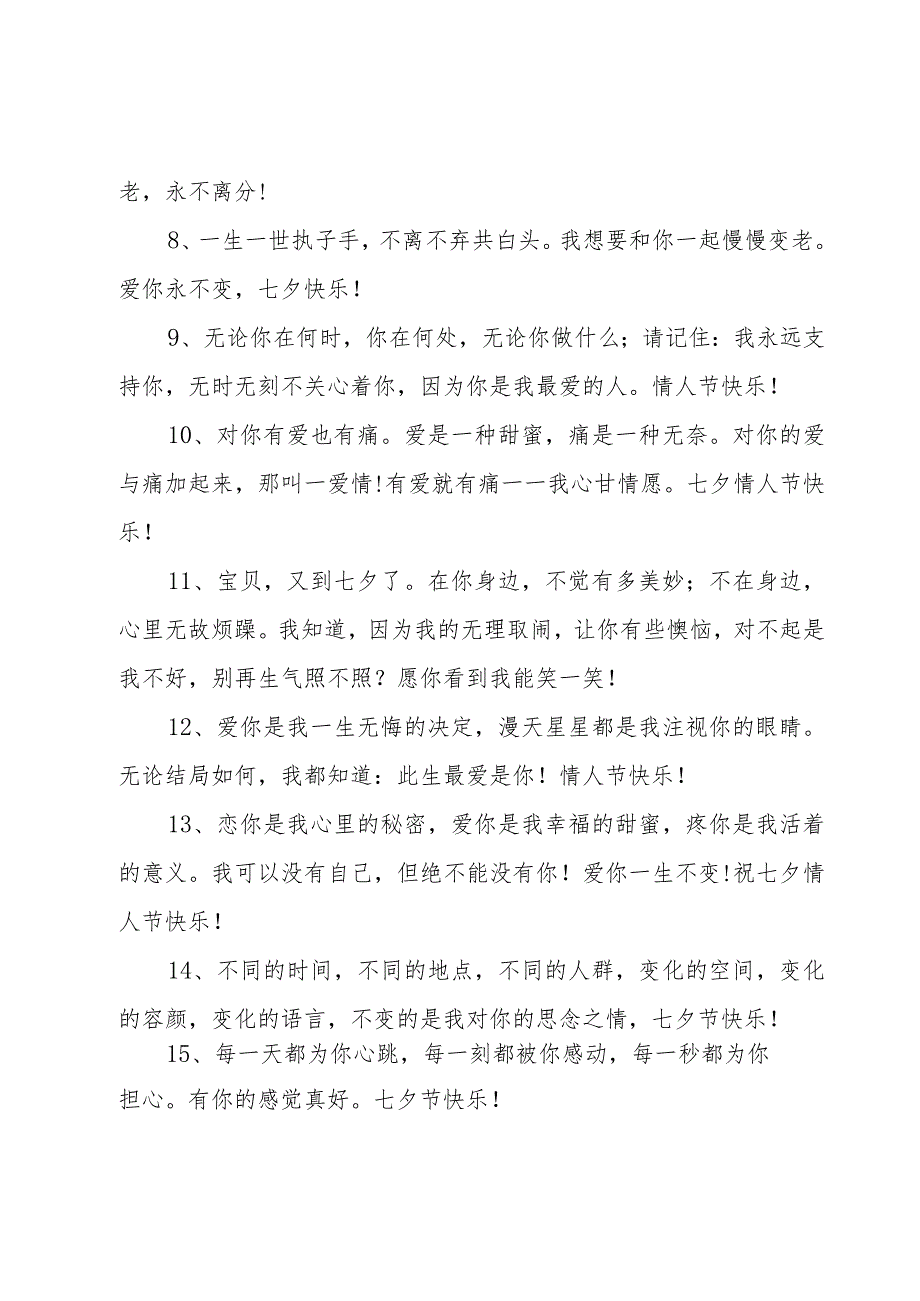 老，永不离分!
8、一生一世执子手，不离不弃共白头。我想要和你一起慢慢变老。
爱你永不变，七夕快乐！
9、无论你在何时，你在何处，无论你做什么；请记住：我永远支
持你，无时无刻不关心着你，因为你是我最爱的人。情人节快乐！
10、对你有爱也有痛。爱是一种甜蜜，痛是一种无奈。对你的爱
与痛加起来，那叫一爱情!有爱就有痛一一我心甘情愿。七夕情人节快
乐！
11、宝贝，又到七夕了。在你身边，不觉有多美妙；不在身边，
心里无故烦躁。我知道，因为我的无理取闹，让你有些懊恼，对不起是
我不好，别再生气照不照？愿你看到我能笑一笑！
12、爱你是我一生无悔的决定，漫天星星都是我注视你的眼睛。
无论结局如何，我都知道：此生最爱是你！情人节快乐！
13、恋你是我心里的秘密，爱你是我幸福的甜蜜，疼你是我活着
的意义。我可以没有自己，但绝不能没有你！爱你一生不变!祝七夕情
人节快乐！
14、不同的时间，不同的地点，不同的人群，变化的空间，变化
的容颜，变化的语言，不变的是我对你的思念之情，七夕节快乐！
15、每一天都为你心跳，每一刻都被你感动，每一秒都为你
担心。有你的感觉真好。七夕节快乐！